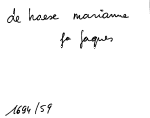 de haese marianne
fa Jaques
1694/59